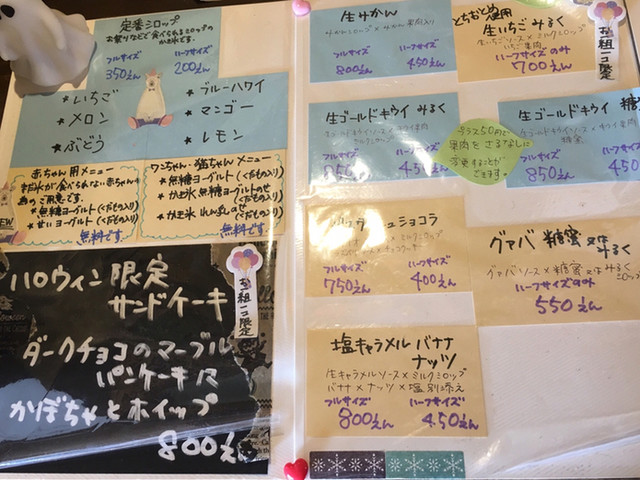 定番シロップ
お祭りなどで食べられるシロップの
かき氷です。
フルサイズ
ハーフサイズ
350えん
200えん
★いちご
★メロン
★ぶどう
★ブルーハワイ
★マンゴー
★レモン
赤ちゃん用メニュー
まだ氷が食べられない赤ちゃん
★無糖ヨーグルト(くだもの入り)
★甘いヨーグルト(くだもの入り)
無料です
ワンちゃん・猫ちゃんメニュー
★無糖ヨーグルト(くだもの入り)
★かき氷 無糖ヨーグルトのせ
(くだもの入り)
無料です
ハロウィン限定
サンドケーキ
ダークチョコのマーブル
パンケーキに
かぼちゃとホイップ
800えん
お一組一コ限定
生みかん
フルサイズ
ハーフサイズ
800えん
450えん
とちおとめ使用
生いちごみるく
生いちごソース×ミルクシロップ
いちご果肉
ハーフサイズのみ
700えん
お一組一コ限定
生ゴールドキウイ みるく
生ゴールドキウイソース×キウイ果肉
フルサイズ
ハーフサイズ
850えん
プラス50円で
果肉をさるなしに
変更することが
できます。
生ゴールドキウイ 糖
生ゴールドキウイソース×キウイ果肉
糖蜜
フルサイズ
ハーフサイズ
850えん
ショコラ
フルサイズ
ハーフサイズ
750えん
400えん
グァバ 糖蜜 又は みるく
グァバソース×糖蜜 又は みるく
シロップ
ハーフサイズのみ
550えん
塩キャラメル バナナ
ナッツ
生キャラメルソース×ミルクシロップ
バナナ×ナッツ×塩 別添え
フルサイズ
ハーフサイズ
800えん
450えん